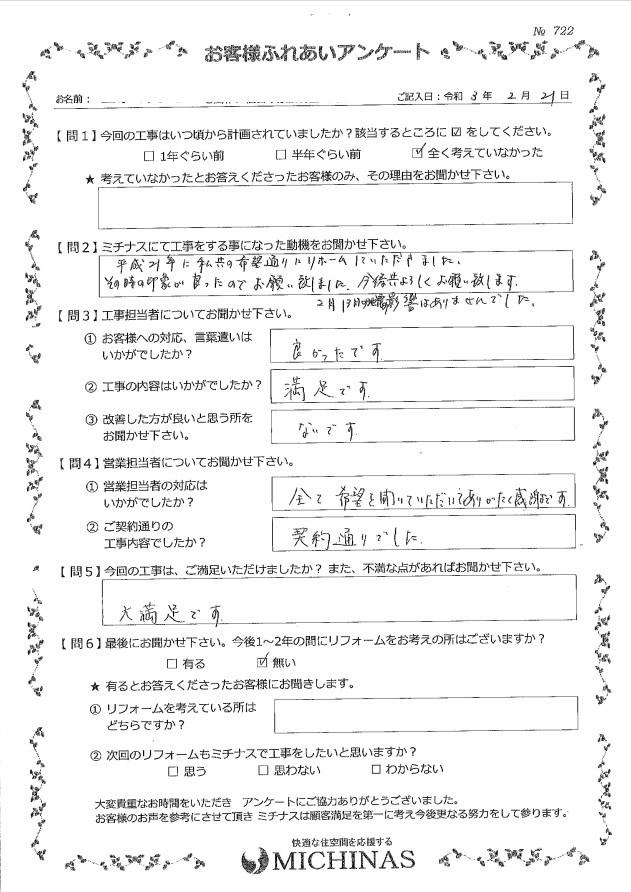 № 722
お客様ふれあいアンケート
お名前：
ご記入日：令和 3 年 2 月 21 日
【問１】今回の工事はいつ頃から計画されていましたか？該当するところに ☑ をしてください。
□ 1年ぐらい前 □ 半年ぐらい前 ☑ 全く考えていなかった
★ 考えていなかったとお答えくださったお客様のみ、その理由をお聞かせ下さい。
【問２】ミチナスにて工事をする事になった動機をお聞かせ下さい。
平成21年に私共の希望通りにリホームしていただきました。
その時の印象が良ったのでお願い致しました。今後共よろしくお願い致します。
2月13日の地震の影響はありませんでした。
【問３】工事担当者についてお聞かせ下さい。
① お客様への対応、言葉遣いは
いかがでしたか？
良かったです。
② 工事の内容はいかがでしたか？
満足です。
③ 改善した方が良いと思う所を
お聞かせ下さい。
ないです。
【問４】営業担当者についてお聞かせ下さい。
① 営業担当者の対応は
いかがでしたか？
全て希望を聞いていただいてありがたく感謝です。
② ご契約通りの
工事内容でしたか？
契約通りでした。
【問５】今回の工事は、ご満足いただけましたか？また、不満な点があればお聞かせ下さい。
大満足です。
【問６】最後にお聞かせ下さい。今後1～2年の間にリフォームをお考えの所はございますか？
□ 有る ☑ 無い
★ 有るとお答えくださったお客様にお聞きします。
① リフォームを考えている所は
どちらですか？
② 次回のリフォームもミチナスで工事をしたいと思いますか？
□ 思う □ 思わない □ わからない
大変貴重なお時間をいただき アンケートにご協力ありがとうございました。
お客様のお声を参考にさせて頂き ミチナスは顧客満足を第一に考え今後更なる努力をして参ります。
快適な住空間を応援する
MICHINAS